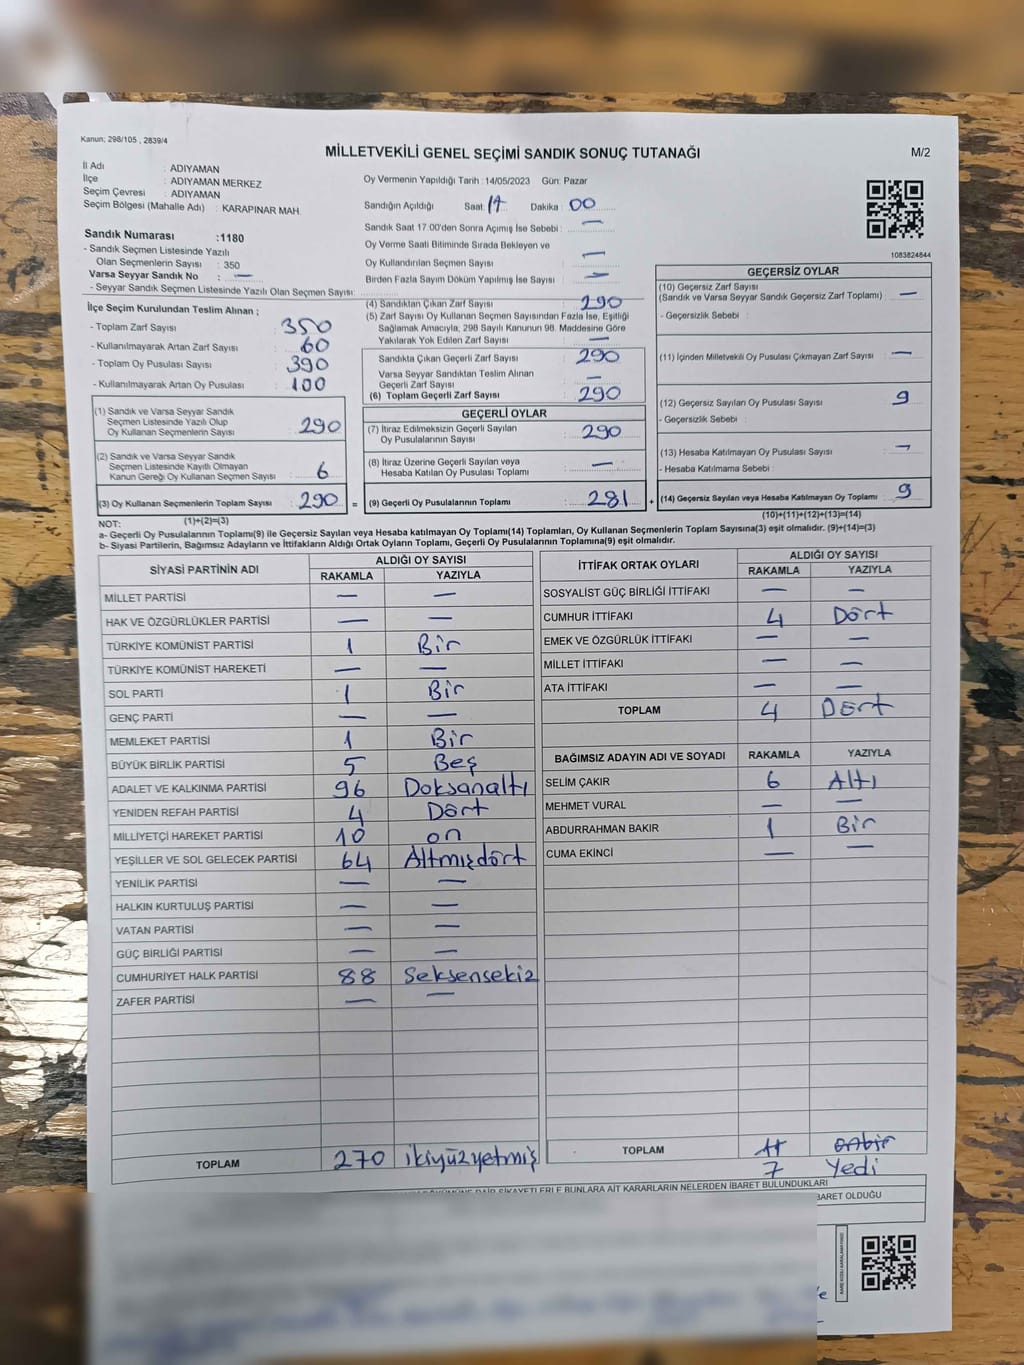 Kanun; 298/105 , 2839/4
MİLLETVEKİLİ GENEL SEÇİMİ SANDIK SONUÇ TUTANAĞI
M/2
İl Adı : ADIYAMAN
İlçe : ADIYAMAN MERKEZ
Seçim Çevresi : ADIYAMAN
Seçim Bölgesi (Mahalle Adı) : KARAPINAR MAH.
Oy Vermenin Yapıldığı Tarih :14/05/2023 Gün: Pazar
Sandığın Açıldığı Saat: 17 Dakika : 00
Sandık Saat 17:00'den Sonra Açımış İse Sebebi : —
Oy Verme Saati Bitiminde Sırada Bekleyen ve
Oy Kullandırılan Seçmen Sayısı : —
Birden Fazla Sayım Döküm Yapılmış İse Sayısı : —
1083824644
Sandık Numarası :1180
- Sandık Seçmen Listesinde Yazılı
Olan Seçmenlerin Sayısı : 350
Varsa Seyyar Sandık No : —
- Seyyar Sandık Seçmen Listesinde Yazılı Olan Seçmen Sayısı:
İlçe Seçim Kurulundan Teslim Alınan ;
- Toplam Zarf Sayısı : 350
- Kullanılmayarak Artan Zarf Sayısı : 60
- Toplam Oy Pusulası Sayısı : 390
- Kullanılmayarak Artan Oy Pusulası : 100
(1) Sandık ve Varsa Seyyar Sandık
Seçmen Listesinde Yazılı Olup
Oy Kullanan Seçmenlerin Sayısı : 290
(2) Sandık ve Varsa Seyyar Sandık
Seçmen Listesinde Kayıtlı Olmayan
Kanun Gereği Oy Kullanan Seçmen Sayısı : 6
(3) Oy Kullanan Seçmenlerin Toplam Sayısı : 290 =
(1)+(2)=(3)
(4) Sandıktan Çıkan Zarf Sayısı : 290
(5) Zarf Sayısı Oy Kullanan Seçmen Sayısından Fazla İse, Eşitliği
Sağlamak Amacıyla; 298 Sayılı Kanunun 98. Maddesine Göre
Yakılarak Yok Edilen Zarf Sayısı : —
Sandıkta Çıkan Geçerli Zarf Sayısı : 290
Varsa Seyyar Sandıktan Teslim Alınan
Geçerli Zarf Sayısı : —
(6) Toplam Geçerli Zarf Sayısı : 290
GEÇERLİ OYLAR
(7) İtiraz Edilmeksizin Geçerli Sayılan
Oy Pusulalarının Sayısı : 290
(8) İtiraz Üzerine Geçerli Sayılan veya
Hesaba Katılan Oy Pusulası Toplamı : —
(9) Geçerli Oy Pusulalarının Toplamı : 281 +
GEÇERSİZ OYLAR
(10) Geçersiz Zarf Sayısı
(Sandık ve Varsa Seyyar Sandık Geçersiz Zarf Toplamı) : —
- Geçersizlik Sebebi :
(11) İçinden Milletvekili Oy Pusulası Çıkmayan Zarf Sayısı : —
(12) Geçersiz Sayılan Oy Pusulası Sayısı : 9
- Geçersizlik Sebebi :
(13) Hesaba Katılmayan Oy Pusulası Sayısı : —
- Hesaba Katılmama Sebebi :
(14) Geçersiz Sayılan veya Hesaba Katılmayan Oy Toplamı : 9
(10)+(11)+(12)+(13)=(14)
NOT:
a- Geçerli Oy Pusulalarının Toplamı(9) ile Geçersiz Sayılan veya Hesaba katılmayan Oy Toplamı(14) Toplamları, Oy Kullanan Seçmenlerin Toplam Sayısına(3) eşit olmalıdır. (9)+(14)=(3)
b- Siyasi Partilerin, Bağımsız Adayların ve İttifakların Aldığı Ortak Oyların Toplamı, Geçerli Oy Pusulalarının Toplamına(9) eşit olmalıdır.
SİYASİ PARTİNİN ADI ALDIĞI OY SAYISI
RAKAMLA YAZIYLA
MİLLET PARTİSİ — —
HAK VE ÖZGÜRLÜKLER PARTİSİ — —
TÜRKİYE KOMÜNİST PARTİSİ 1 Bir
TÜRKİYE KOMÜNİST HAREKETİ — —
SOL PARTİ 1 Bir
GENÇ PARTİ — —
MEMLEKET PARTİSİ 1 Bir
BÜYÜK BİRLİK PARTİSİ 5 Beş
ADALET VE KALKINMA PARTİSİ 96 Doksanaltı
YENİDEN REFAH PARTİSİ 4 Dört
MİLLİYETÇİ HAREKET PARTİSİ 10 on
YEŞİLLER VE SOL GELECEK PARTİSİ 64 Altmışdört
YENİLİK PARTİSİ — —
HALKIN KURTULUŞ PARTİSİ — —
VATAN PARTİSİ — —
GÜÇ BİRLİĞİ PARTİSİ — —
CUMHURİYET HALK PARTİSİ 88 Seksensekiz
ZAFER PARTİSİ — —
TOPLAM 270 ikiyüzyetmiş
İTTİFAK ORTAK OYLARI ALDIĞI OY SAYISI
RAKAMLA YAZIYLA
SOSYALİST GÜÇ BİRLİĞİ İTTİFAKI — —
CUMHUR İTTİFAKI 4 Dört
EMEK VE ÖZGÜRLÜK İTTİFAKI — —
MİLLET İTTİFAKI — —
ATA İTTİFAKI — —
TOPLAM 4 Dört
BAĞIMSIZ ADAYIN ADI VE SOYADI RAKAMLA YAZIYLA
SELİM ÇAKIR 6 Altı
MEHMET VURAL — —
ABDURRAHMAN BAKIR 1 Bir
CUMA EKİNCİ — —
TOPLAM 11 onbir
7 Yedi
ŞİKAYETLERLE BUNLARA AİT KARARLARIN NELERDEN İBARET BULUNDUKLARI
BARET OLDUĞU